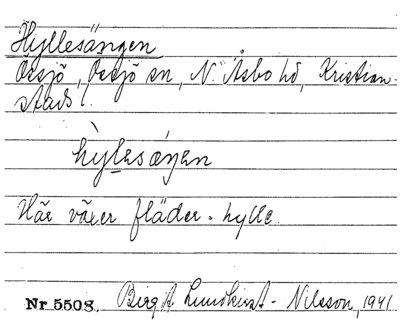 Hyllesängen
Össjö, Össjö sn, N. Åsbo hd, Kristian-
stads l.
hỳlesáŋen
Här växer fläder = hylle.
Nr 5508. Birgit Lundkvist-Nilsson, 1941